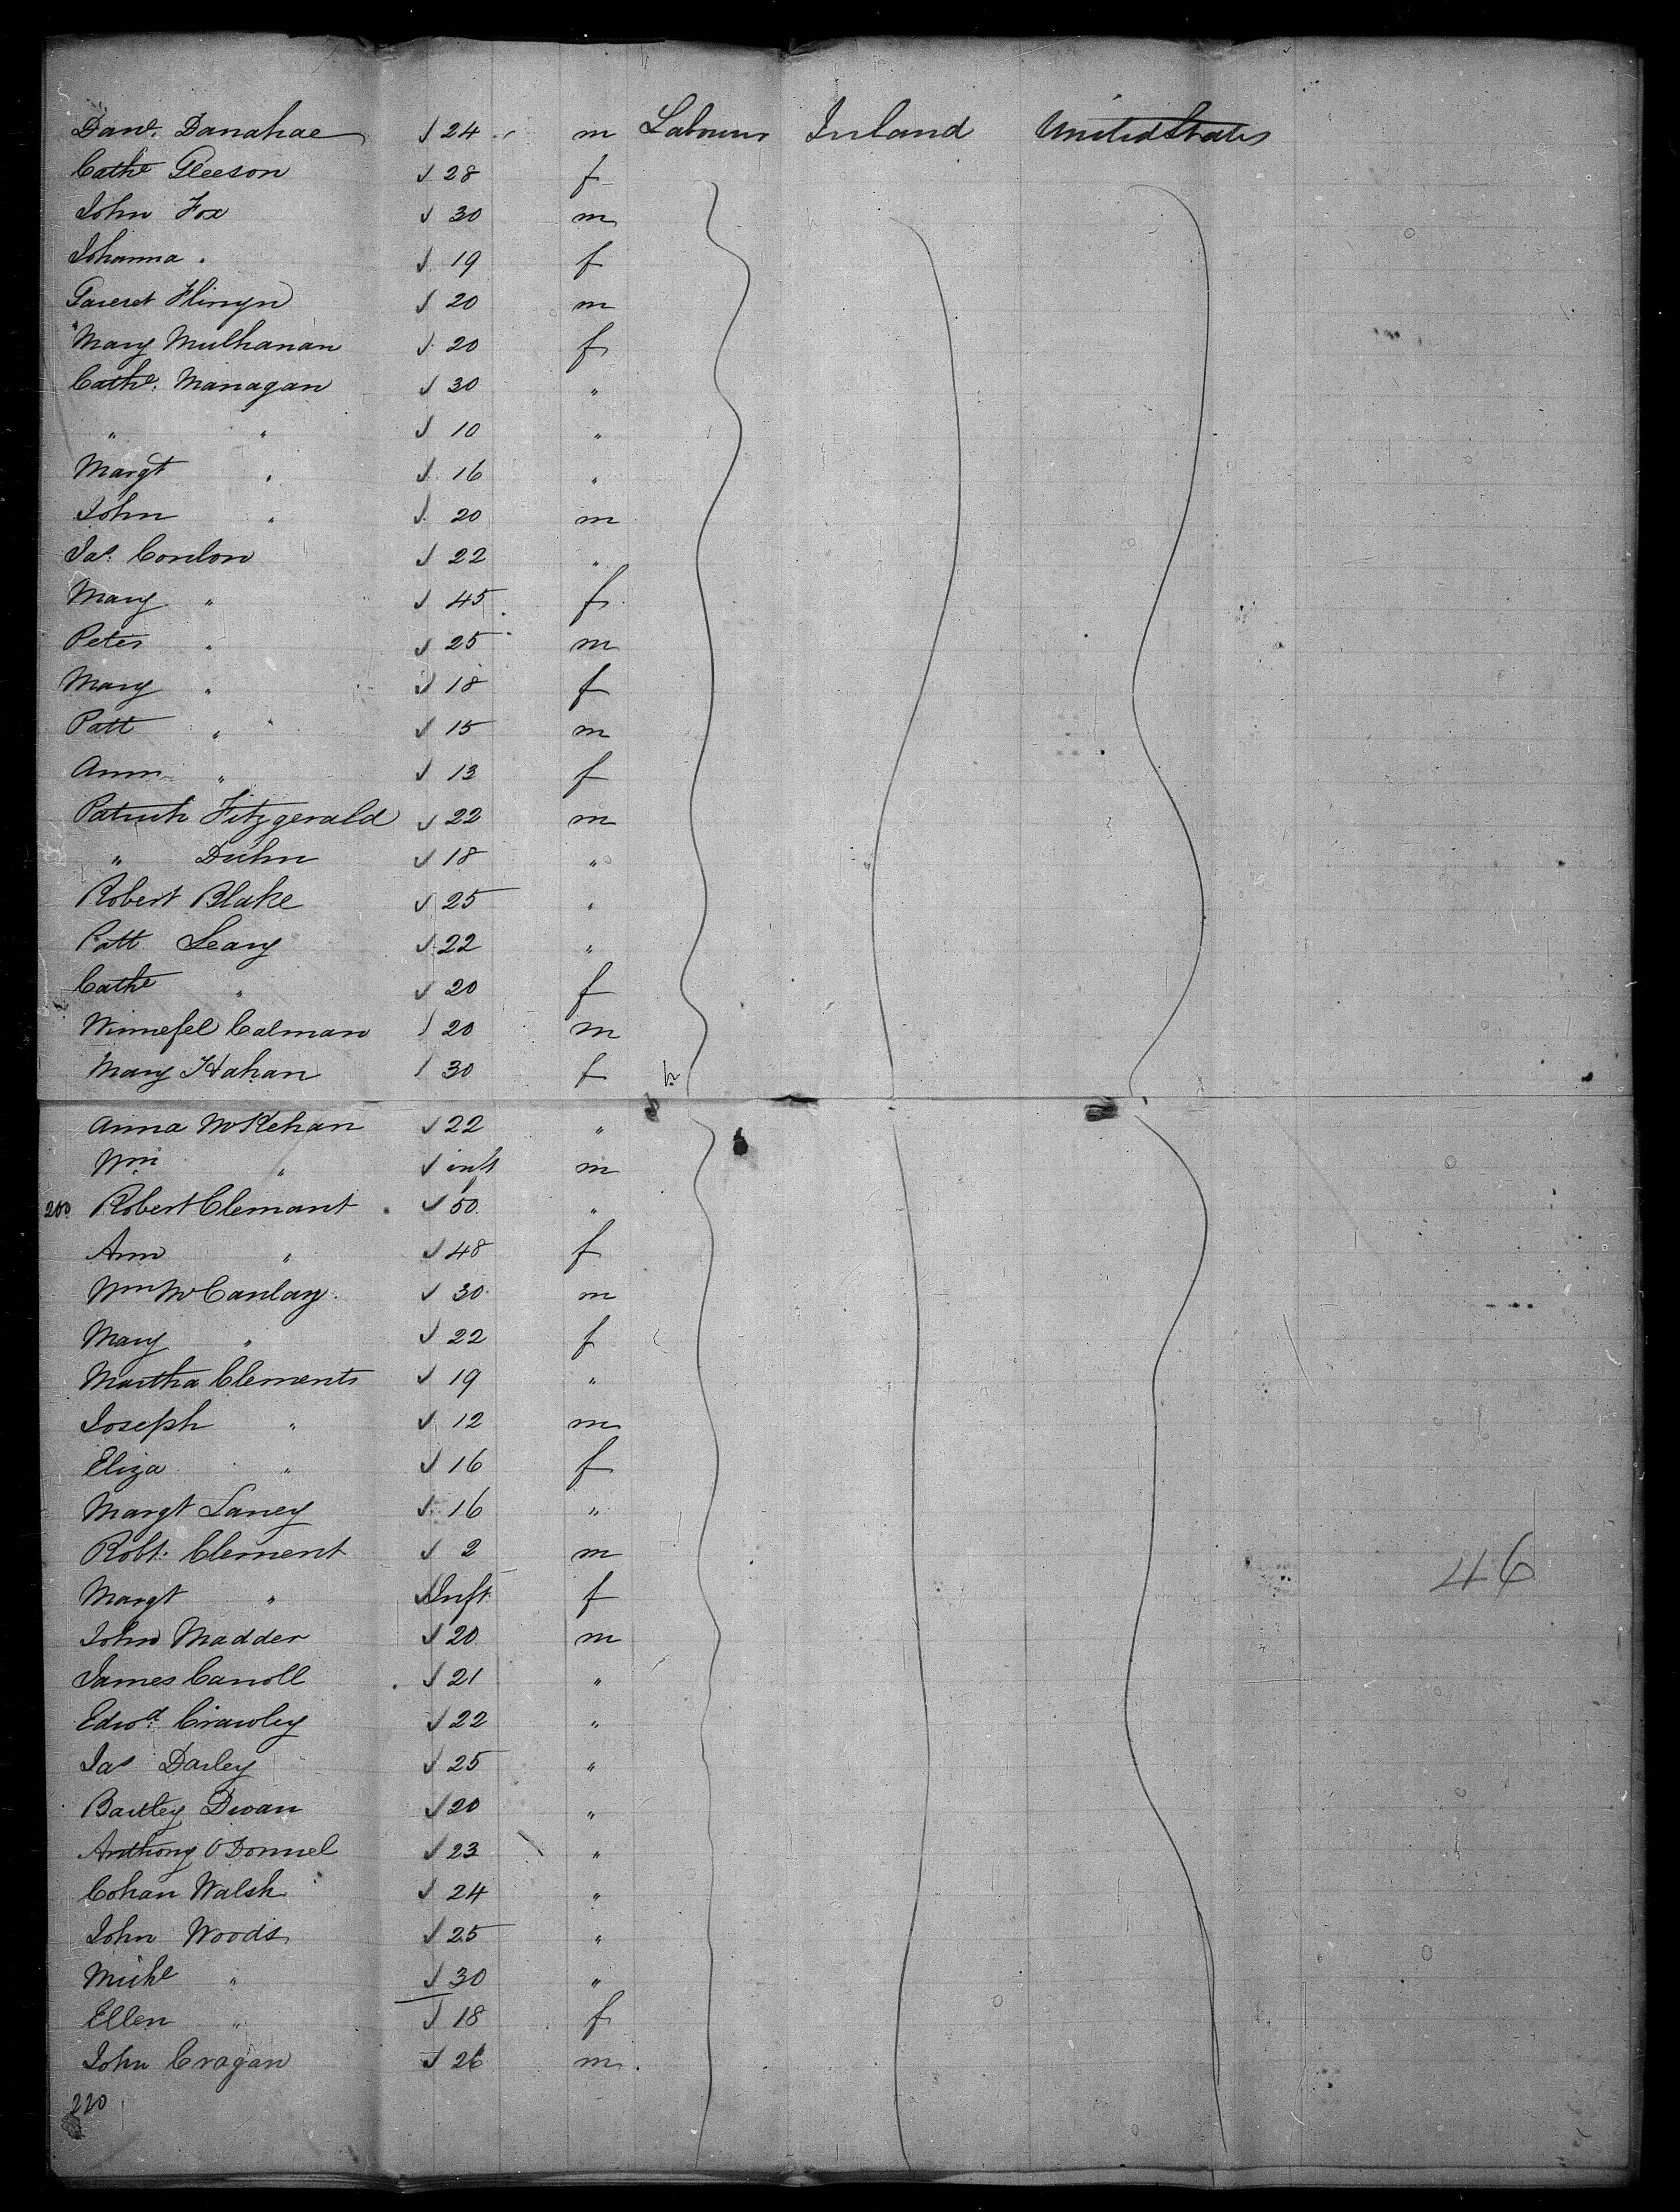 Danl. Danahae 24 m Labourer Ireland United States
Cathe Gleeson 28 f
John Fox 30 m
Johanna " 19 f
Gareret Flinyn 20 m
Mary Mulhanan 20 f
Cathe. Managan 30 "
" " 10 "
Margt " 16 "
John " 20 m
Jas. Conlon 22 "
Mary " 45 f
Peter " 25 m
Mary " 18 f
Patt " 15 m
Ann " 13 f
Patrick Fitzgerald 22 m
" Duhn 18 "
Robert Blake 25 "
Patt Leary 22 "
Cathe " 20 f
Winnefel Calman 20 m
Mary Hahan 30 f
Anna McKehan 22 "
Wm " inft m
200 Robert Clemant 50 "
Ann " 48 f
Wm McCanlay 30 m
Mary " 22 f
Martha Clements 19 "
Joseph " 12 m
Eliza " 16 f
Margt Laney 16 "
Robt. Clement 2 m
46
Margt " Inft f
John Madder 20 m
James Carroll 21 "
Edwd. Crawley 22 "
Jas Darley 25 "
Bartley Dwan 20 "
Anthony ODonnel 23 "
Cohan Walsh 24 "
John Woods 25 "
Michl " 30 "
Ellen " 18 f
John Cragan 26 m
220